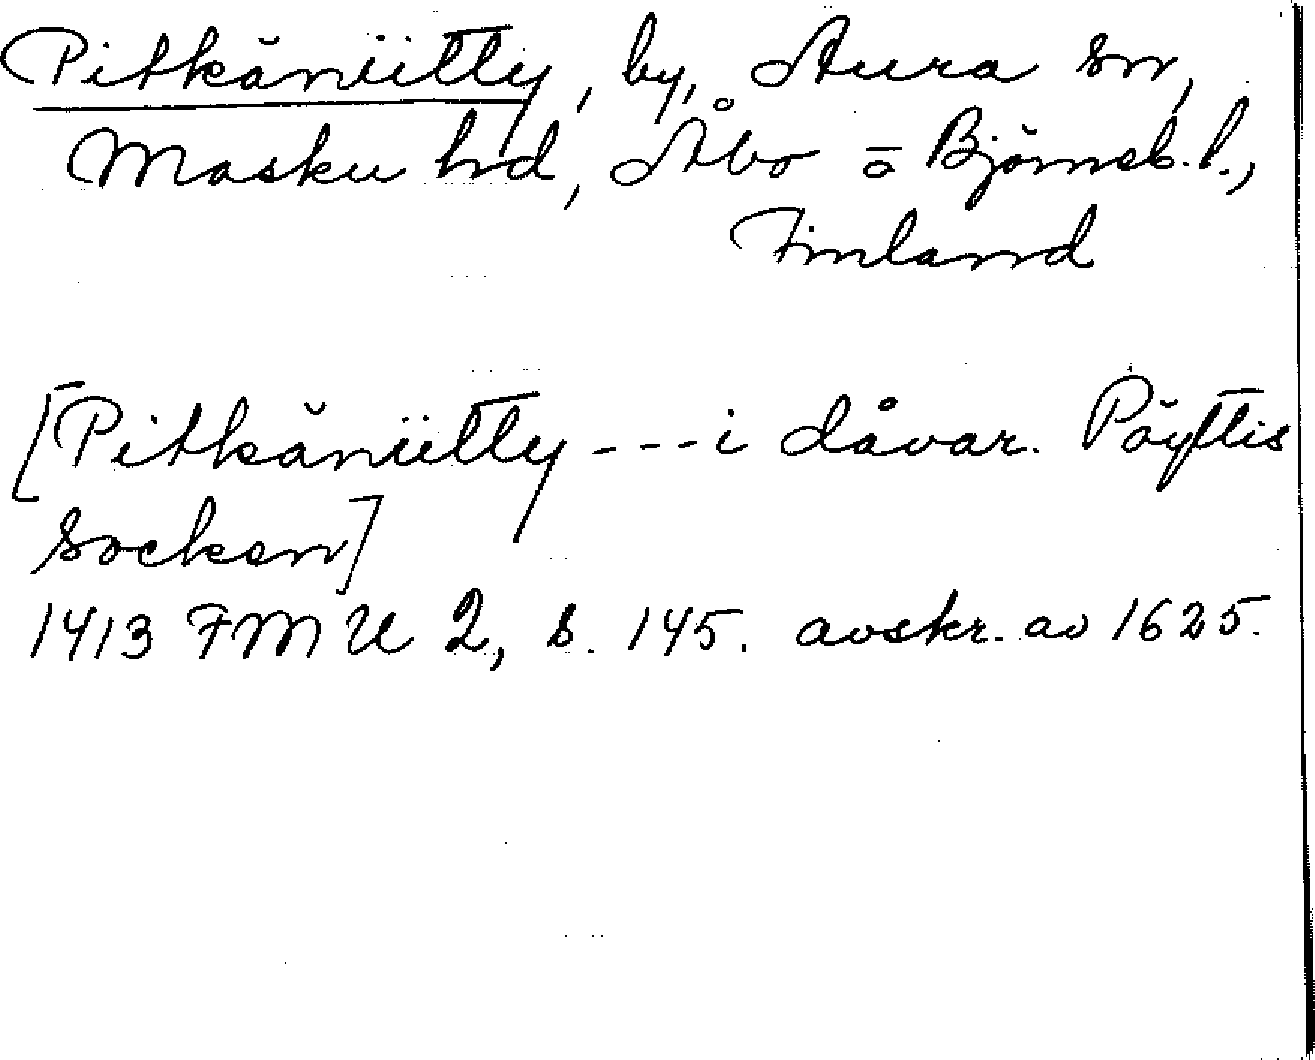 Pitkäniitty, by, Aura sn,
Masku hd, Åbo o Björneb. l.,
Finland
[Pitkäniitty --- i dåvar. Pöytis
socken]
1413 FMU 2, s. 145. avskr. av 1625.